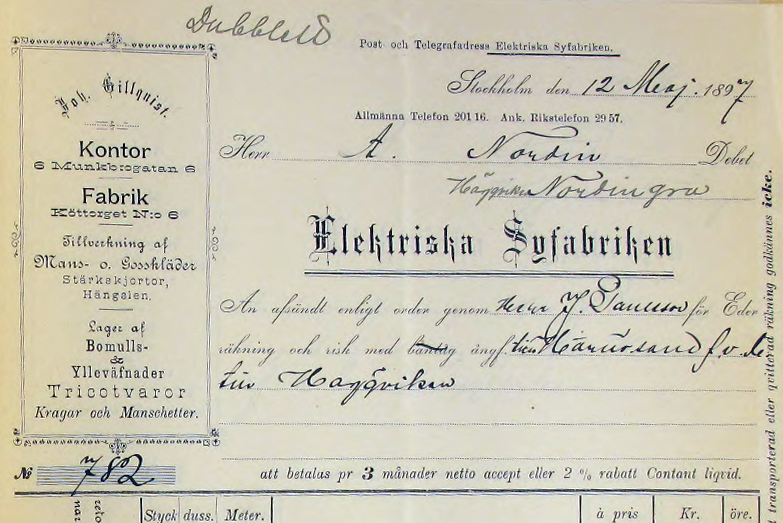 Dubblett
Post och Telegrafadress Elektriska Syfabriken.
Stockholm den 12 Maj. 1897
Allmänna Telefon 201 16. Ank. Rikstelefon 29 57.
Herr A. Nordin Debet
Häggviken Nordingrå
Elektriska Syfabriken
An afsändt enligt order genom Herr J. för Eder
räkning och risk med bantåg ångf. till Härnösand f. v. b.
till Häggviken
Joh. Gillqvist.
Kontor
6 Munkbrogatan 6
Fabrik
Köttorget N:o 6
Tillverkning af
Mans- o. Gosskläder
Stärkskjortor,
Hängslen.
Lager af
Bomulls-
&
Ylleväfnader
Tricotvaror
Kragar och Manschetter.
№ 782
att betalas pr 3 månader netto accept eller 2 % rabatt Contant liqvid.
transporterad eller qvitterad räkning godkännes icke.
Styck duss. Meter. à pris Kr. öre.